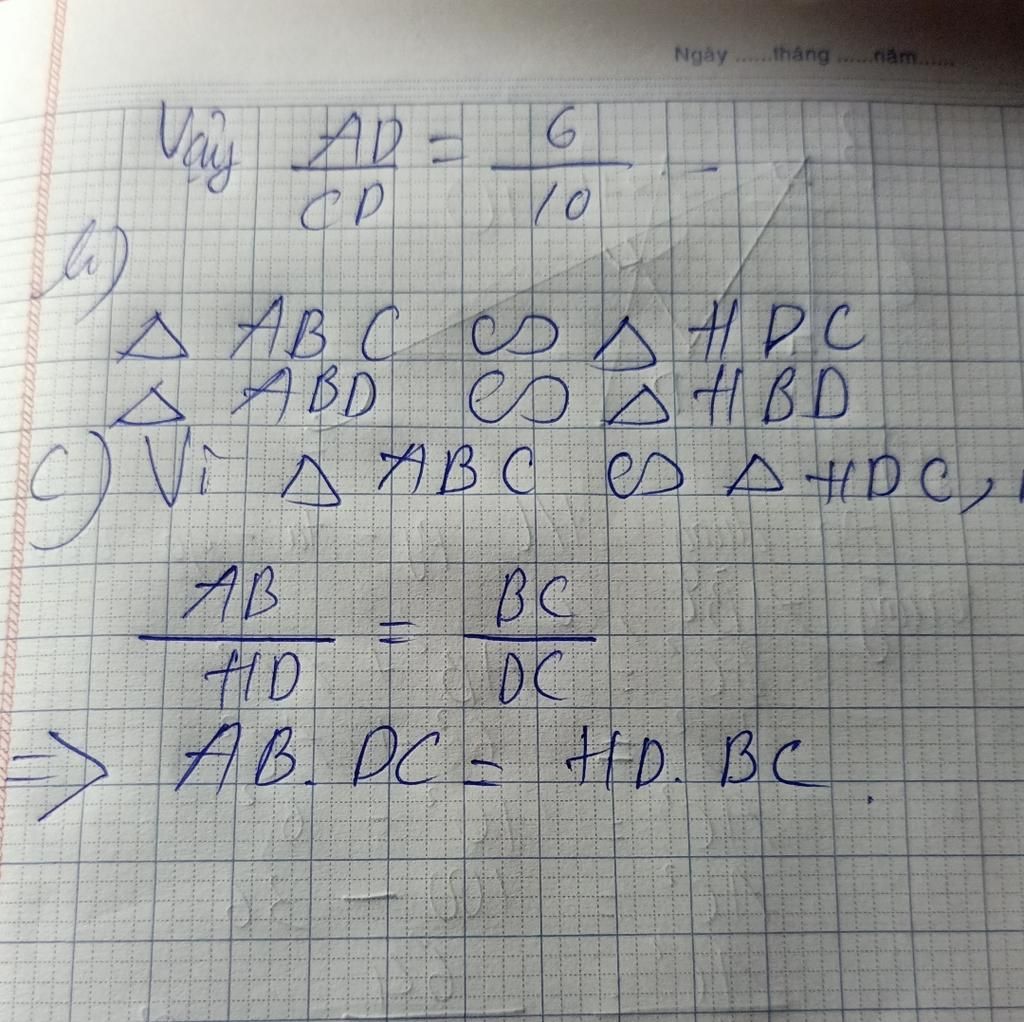 Ngày ......tháng ......năm......
Vậy AD/CD = 6/10
b)
△ ABC ∽ △ HDC
△ ABD ∽ △ HBD
c) Vì △ ABC ∽ △ HDC,
AB/HD = BC/DC
=> AB. DC = HD. BC.